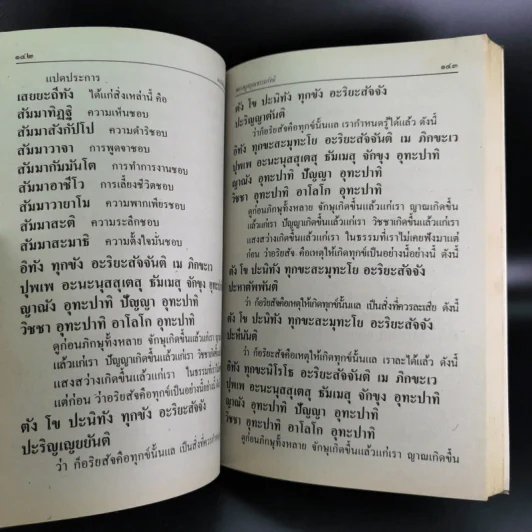 ๑๔๒
แปดประการ
เสยยะถีทัง ได้แก่สิ่งเหล่านี้ คือ
สัมมาทิฏฐิ ความเห็นชอบ
สัมมาสังกัปโป ความดำริชอบ
สัมมาวาจา การพูดจาชอบ
สัมมากัมมันโต การทำการงานชอบ
สัมมาอาชีโว การเลี้ยงชีวิตชอบ
สัมมาวายาโม ความพากเพียรชอบ
สัมมาสะติ ความระลึกชอบ
สัมมาสะมาธิ ความตั้งใจมั่นชอบ
อิทัง ทุกขัง อะริยะสัจจันติ เม ภิกขะเว
ปุพเพ อะนะนุสสุเตสุ ธัมเมสุ จักขุง อุทะปาทิ
ญาณัง อุทะปาทิ ปัญญา อุทะปาทิ
วิชชา อุทะปาทิ อาโลโก อุทะปาทิ
ดูก่อนภิกษุทั้งหลาย จักษุเกิดขึ้นแล้วแก่เรา
แล้วแก่เรา ปัญญาเกิดขึ้นแล้วแก่เรา
แสงสว่างเกิดขึ้นแล้วแก่เรา
แต่ก่อน ว่าอริยสัจคือทุกข์เป็นอย่างนี้อย่างนี้
ตัง โข ปะนิทัง ทุกขัง อะริยะสัจจัง
ปะริญเญยยันติ
ว่า ก็อริยสัจคือทุกข์นั้นแล เป็นสิ่งที่ควร
๑๔๓
ตัง โข ปะนิทัง ทุกขัง อะริยะสัจจัง
ปะริญญาตันติ
ว่าก็อริยสัจคือทุกข์นั้นแล เรากำหนดรู้ได้แล้ว ดังนี้
อิทัง ทุกขะสะมุทะโย อะริยะสัจจันติ เม ภิกขะเว
ปุพเพ อะนะนุสสุเตสุ ธัมเมสุ จักขุง อุทะปาทิ
ญาณัง อุทะปาทิ ปัญญา อุทะปาทิ
วิชชา อุทะปาทิ อาโลโก อุทะปาทิ
ดูก่อนภิกษุทั้งหลาย จักษุเกิดขึ้นแล้วแก่เรา ญาณเกิดขึ้น
แล้วแก่เรา ปัญญาเกิดขึ้นแล้วแก่เรา วิชชาเกิดขึ้นแล้วแก่เรา
แสงสว่างเกิดขึ้นแล้วแก่เรา ในธรรมที่เราไม่เคยฟังมาแต่
ก่อน ว่าอริยสัจ คือเหตุให้เกิดทุกข์เป็นอย่างนี้อย่างนี้ ดังนี้
ตัง โข ปะนิทัง ทุกขะสะมุทะโย อะริยะสัจจัง
ปะหาตัพพันติ
ว่า ก็อริยสัจคือเหตุให้เกิดทุกข์นั้นแล เป็นสิ่งที่ควรละเสีย ดังนี้
ตัง โข ปะนิทัง ทุกขะสะมุทะโย อะริยะสัจจัง
ปะหีนันติ
ว่า ก็อริยสัจคือเหตุให้เกิดทุกข์นั้นแล เราละได้แล้ว ดังนี้
อิทัง ทุกขะนิโรโธ อะริยะสัจจันติ เม ภิกขะเว
ปุพเพ อะนะนุสสุเตสุ ธัมเมสุ จักขุง อุทะปาทิ
ญาณัง อุทะปาทิ ปัญญา อุทะปาทิ
วิชชา อุทะปาทิ อาโลโก อุทะปาทิ
ดูก่อนภิกษุทั้งหลาย จักษุเกิดขึ้นแล้วแก่เรา ญาณเกิดขึ้น